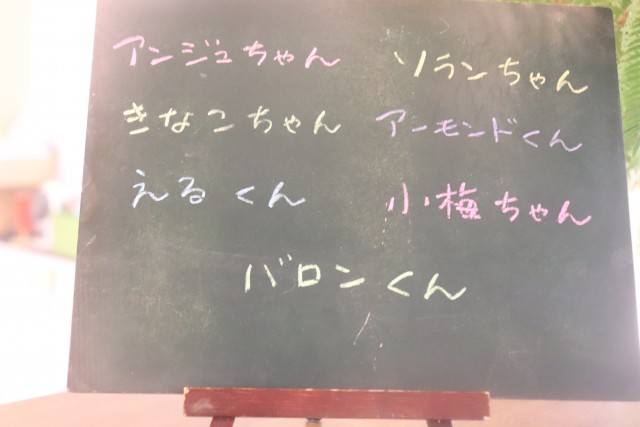 アンジュちゃん ソランちゃん
きなこちゃん アーモンドくん
えるくん 小梅ちゃん
バロンくん